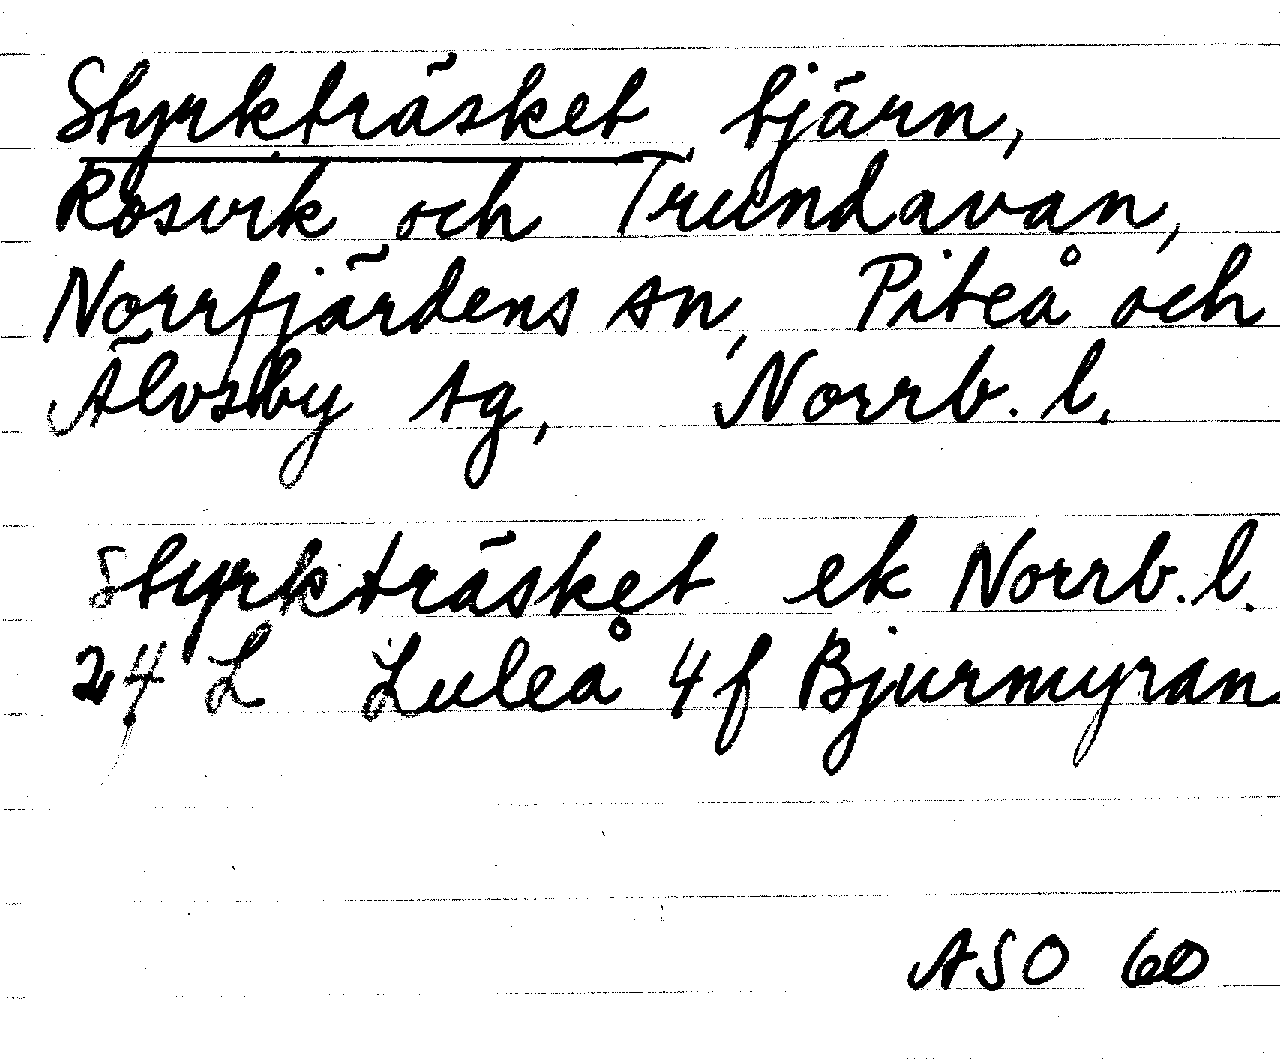 Styrkträsket tjärn,
Rosvik och Trundavan,
Norrfjärdens sn, Piteå och
Älvsby tg, Norrb. l.
Styrkträsket ek Norrb. l.
24 L Luleå 4f Bjurmyran
ASO 60